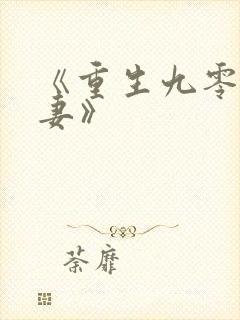 《重生九零
妻》
荼靡